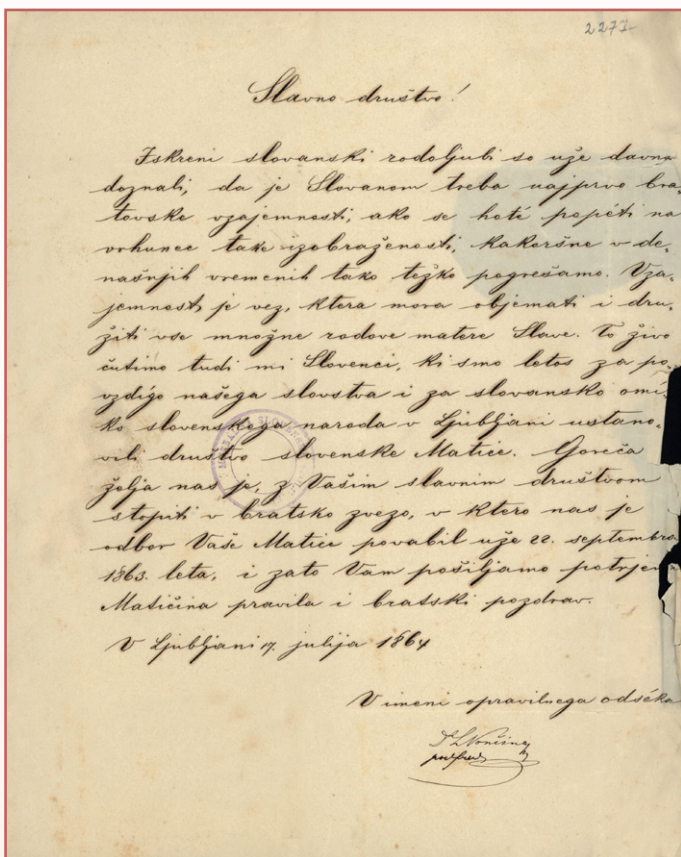 2277
Slavno društvo!
Iskreni slovanski rodoljubi so uže davna
doznali, da je Slovanom treba najprvo bra-
tovske vzajemnosti, ako se hoté popéti na
vrhunec take izobraženosti, kakoršne v de-
našnjih vremenih tako težko pogrešamo. Vza-
jemnost je vez, ktera mora objemati i dru-
žiti vse množne rodove matere Slave. To živo
čutimo tudi mi Slovenci, ki smo letos za po-
vzdigo našega slovstva i za slovansko omi-
ko slovenskega naroda v Ljubljani ustano-
vili društvo slovenske Matice. Goreča
želja nas je, z Vašim slavnim društvom
stopiti v bratsko zvezo, v ktero nas je
odbor Vaše Matice povabil uže 22. septembra
1863. leta, i zato Vam pošiljamo potrjen
Matičina pravila i bratski pozdrav.
V Ljubljani 17. julija 1864
V imeni opravilnega odséka